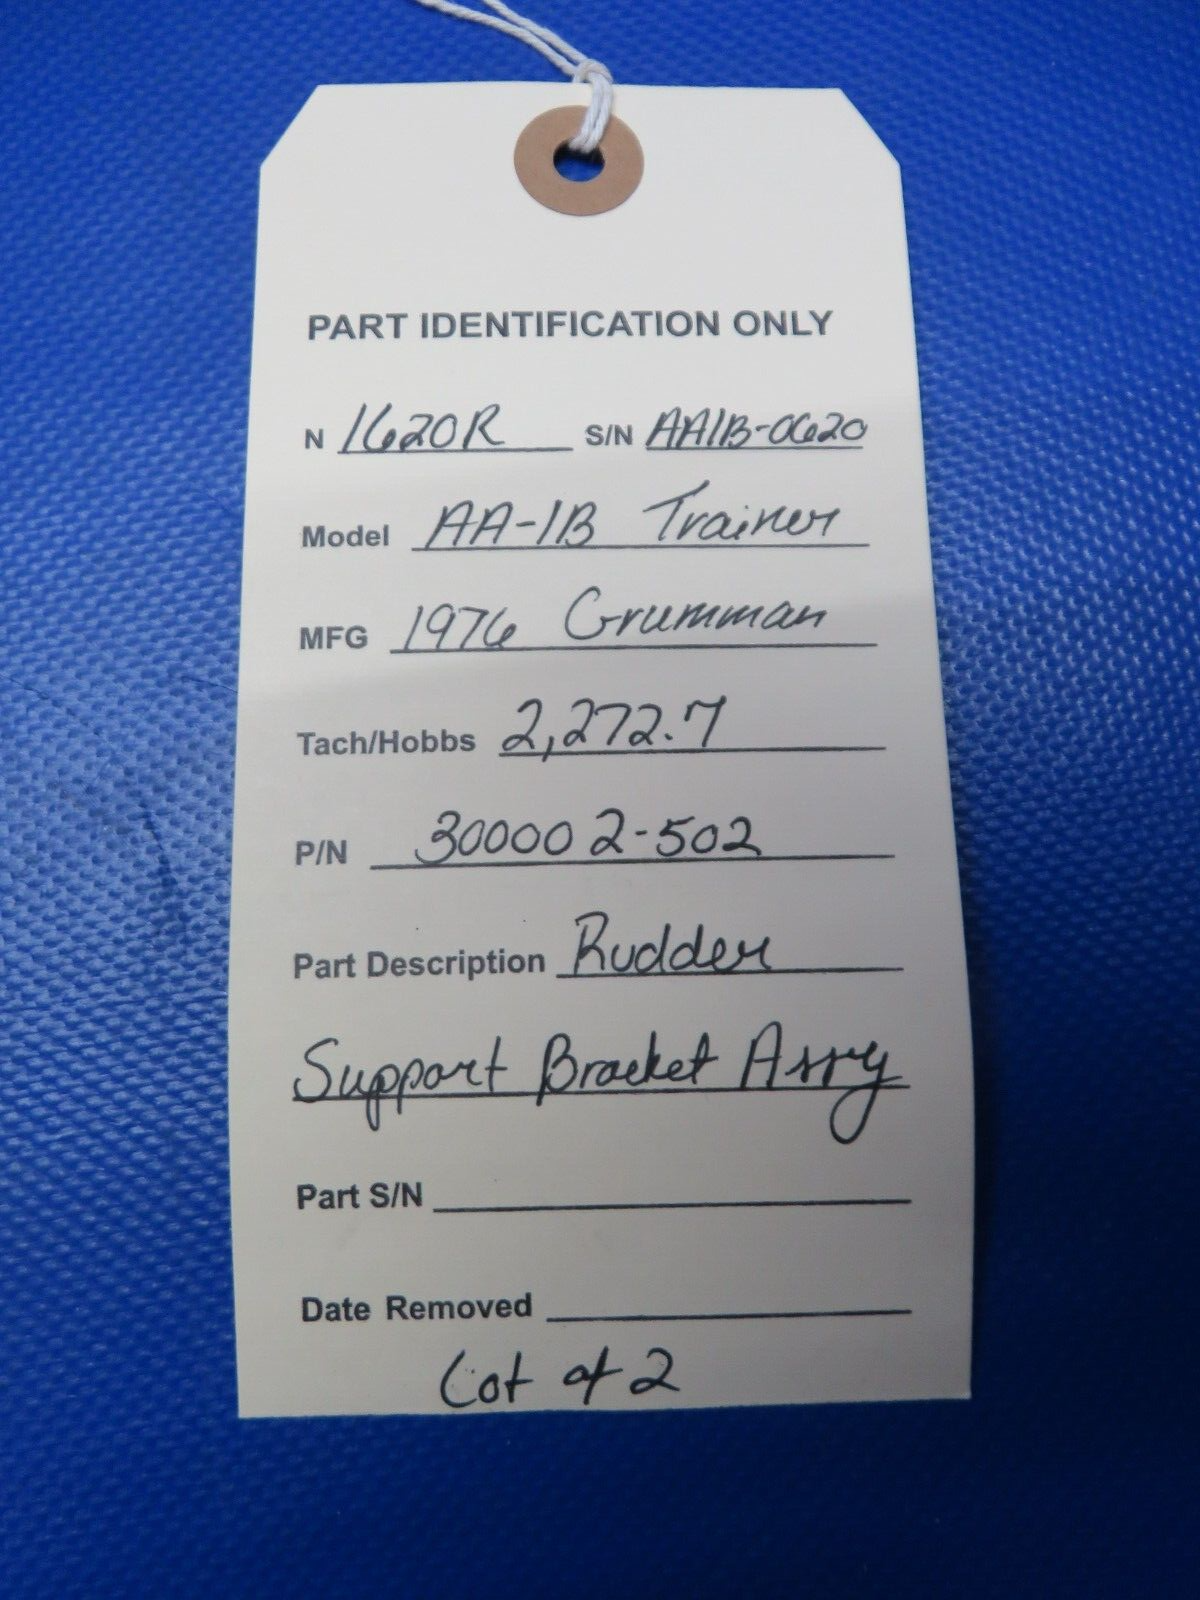 PART IDENTIFICATION ONLY
N 1620R S/N AA1B-0620
Model AA-1B Trainer
MFG 1976 Grumman
Tach/Hobbs 2,272.7
P/N 300002-502
Part Description Rudder
Support Bracket Assy
Part S/N
Date Removed
Lot of 2